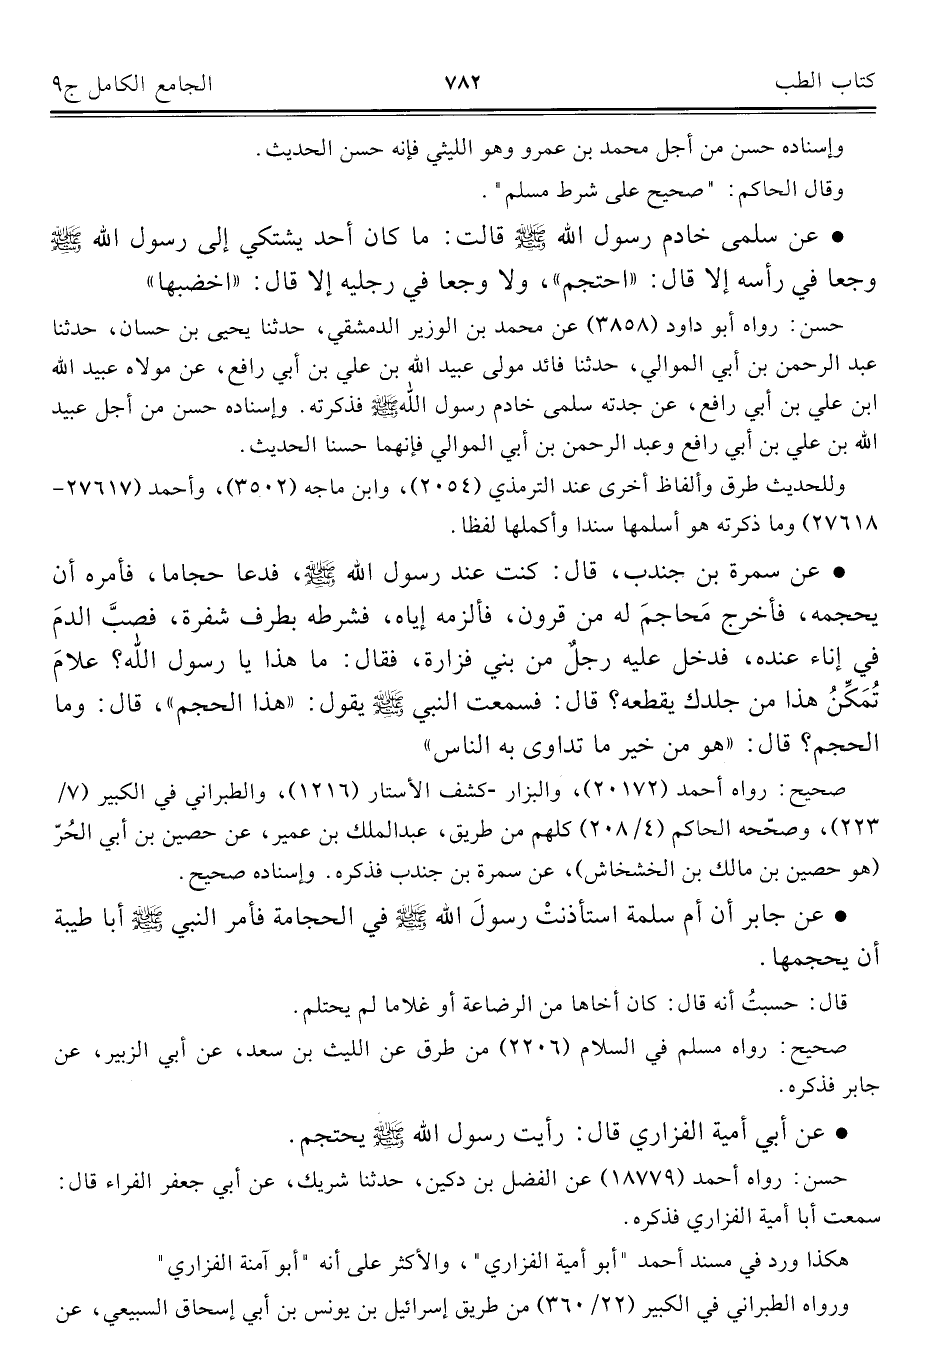 كتاب الطب ٧٨٢ الجامع الكامل ج٩
وإسناده حسن من أجل محمد بن عمرو وهو الليثي فإنه حسن الحديث.
وقال الحاكم: "صحيح على شرط مسلم".
• عن سلمى خادم رسول الله ﷺ قالت: ما كان أحد يشتكي إلى رسول الله ﷺ
وجعا في رأسه إلا قال: «احتجم»، ولا وجعا في رجليه إلا قال: «اخضبها»
حسن: رواه أبو داود (٣٨٥٨) عن محمد بن الوزير الدمشقي، حدثنا يحيى بن حسان، حدثنا
عبد الرحمن بن أبي الموالي، حدثنا فائد مولى عبيد الله بن علي بن أبي رافع، عن مولاه عبيد الله
ابن علي بن أبي رافع، عن جدته سلمى خادم رسول اللهﷺ فذكرته. وإسناده حسن من أجل عبيد
الله بن علي بن أبي رافع وعبد الرحمن بن أبي الموالي فإنهما حسنا الحديث.
وللحديث طرق وألفاظ أخرى عند الترمذي (٢٠٥٤)، وابن ماجه (٣٥٠٢)، وأحمد (٢٧٦١٧-
٢٧٦١٨) وما ذكرته هو أسلمها سندا وأكملها لفظا.
• عن سمرة بن جندب، قال: كنت عند رسول الله ﷺ، فدعا حجاما، فأمره أن
يحجمه، فأخرج مَحاجمَ له من قرون، فألزمه إياه، فشرطه بطرف شفرة، فصبَّ الدمَ
في إناء عنده، فدخل عليه رجلٌ من بني فزارة، فقال: ما هذا يا رسول الله؟ علامَ
تُمَكِّنُ هذا من جلدك يقطعه؟ قال: فسمعت النبي ﷺ يقول: «هذا الحجم»، قال: وما
الحجم؟ قال: «هو من خير ما تداوى به الناس»
صحيح: رواه أحمد (٢٠١٧٢)، والبزار -كشف الأستار (١٢١٦)، والطبراني في الكبير (٧/
٢٢٣)، وصحّحه الحاكم (٢٠٨/٤) كلهم من طريق، عبدالملك بن عمير، عن حصين بن أبي الحُرّ
(هو حصين بن مالك بن الخشخاش)، عن سمرة بن جندب فذكره. وإسناده صحيح.
• عن جابر أن أم سلمة استأذنتْ رسولَ الله ﷺ في الحجامة فأمر النبي ﷺ أبا طيبة
أن يحجمها.
قال: حسبتُ أنه قال: كان أخاها من الرضاعة أو غلاما لم يحتلم.
صحيح: رواه مسلم في السلام (٢٢٠٦) من طرق عن الليث بن سعد، عن أبي الزبير، عن
جابر فذكره.
• عن أبي أمية الفزاري قال: رأيت رسول الله ﷺ يحتجم.
حسن: رواه أحمد (١٨٧٧٩) عن الفضل بن دكين، حدثنا شريك، عن أبي جعفر الفراء قال:
سمعت أبا أمية الفزاري فذكره.
هكذا ورد في مسند أحمد "أبو أمية الفزاري"، والأكثر على أنه "أبو آمنة الفزاري"
ورواه الطبراني في الكبير (٣٦٠/٢٢) من طريق إسرائيل بن يونس بن أبي إسحاق السبيعي، عن